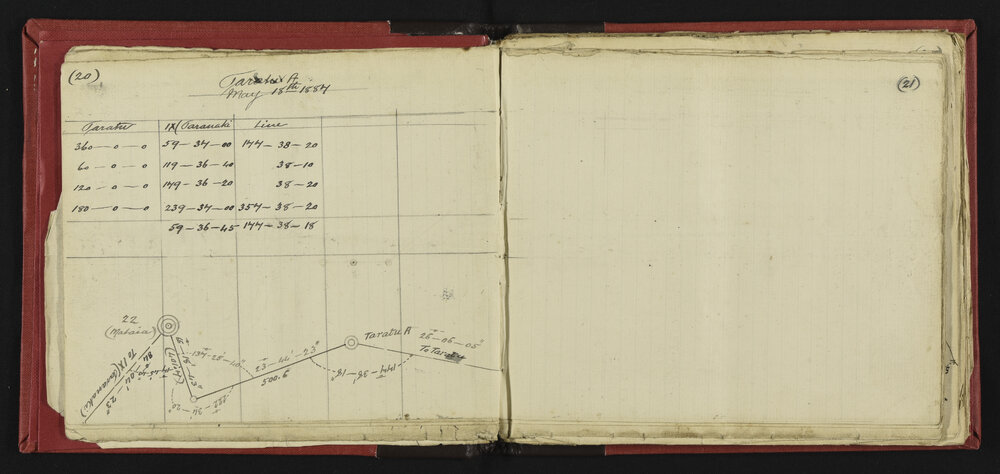 (20)
Taratu A
May 18th 1887
Taratu IX (Taranaki Line
360—0—0 59—37—00 177—38—20
60—0—0 119—36—40 38—10
120—0—0 179—36—20 38—20
180—0—0 239—37—00 357—38—20
59—36—45 177—38—18
22
(Mataia)
Taratu A
25—06—05"
To Taratu
23—44'—23"
500.6
177—38'—18"
137—25'—40"
To IX (Taranaki)
(21)